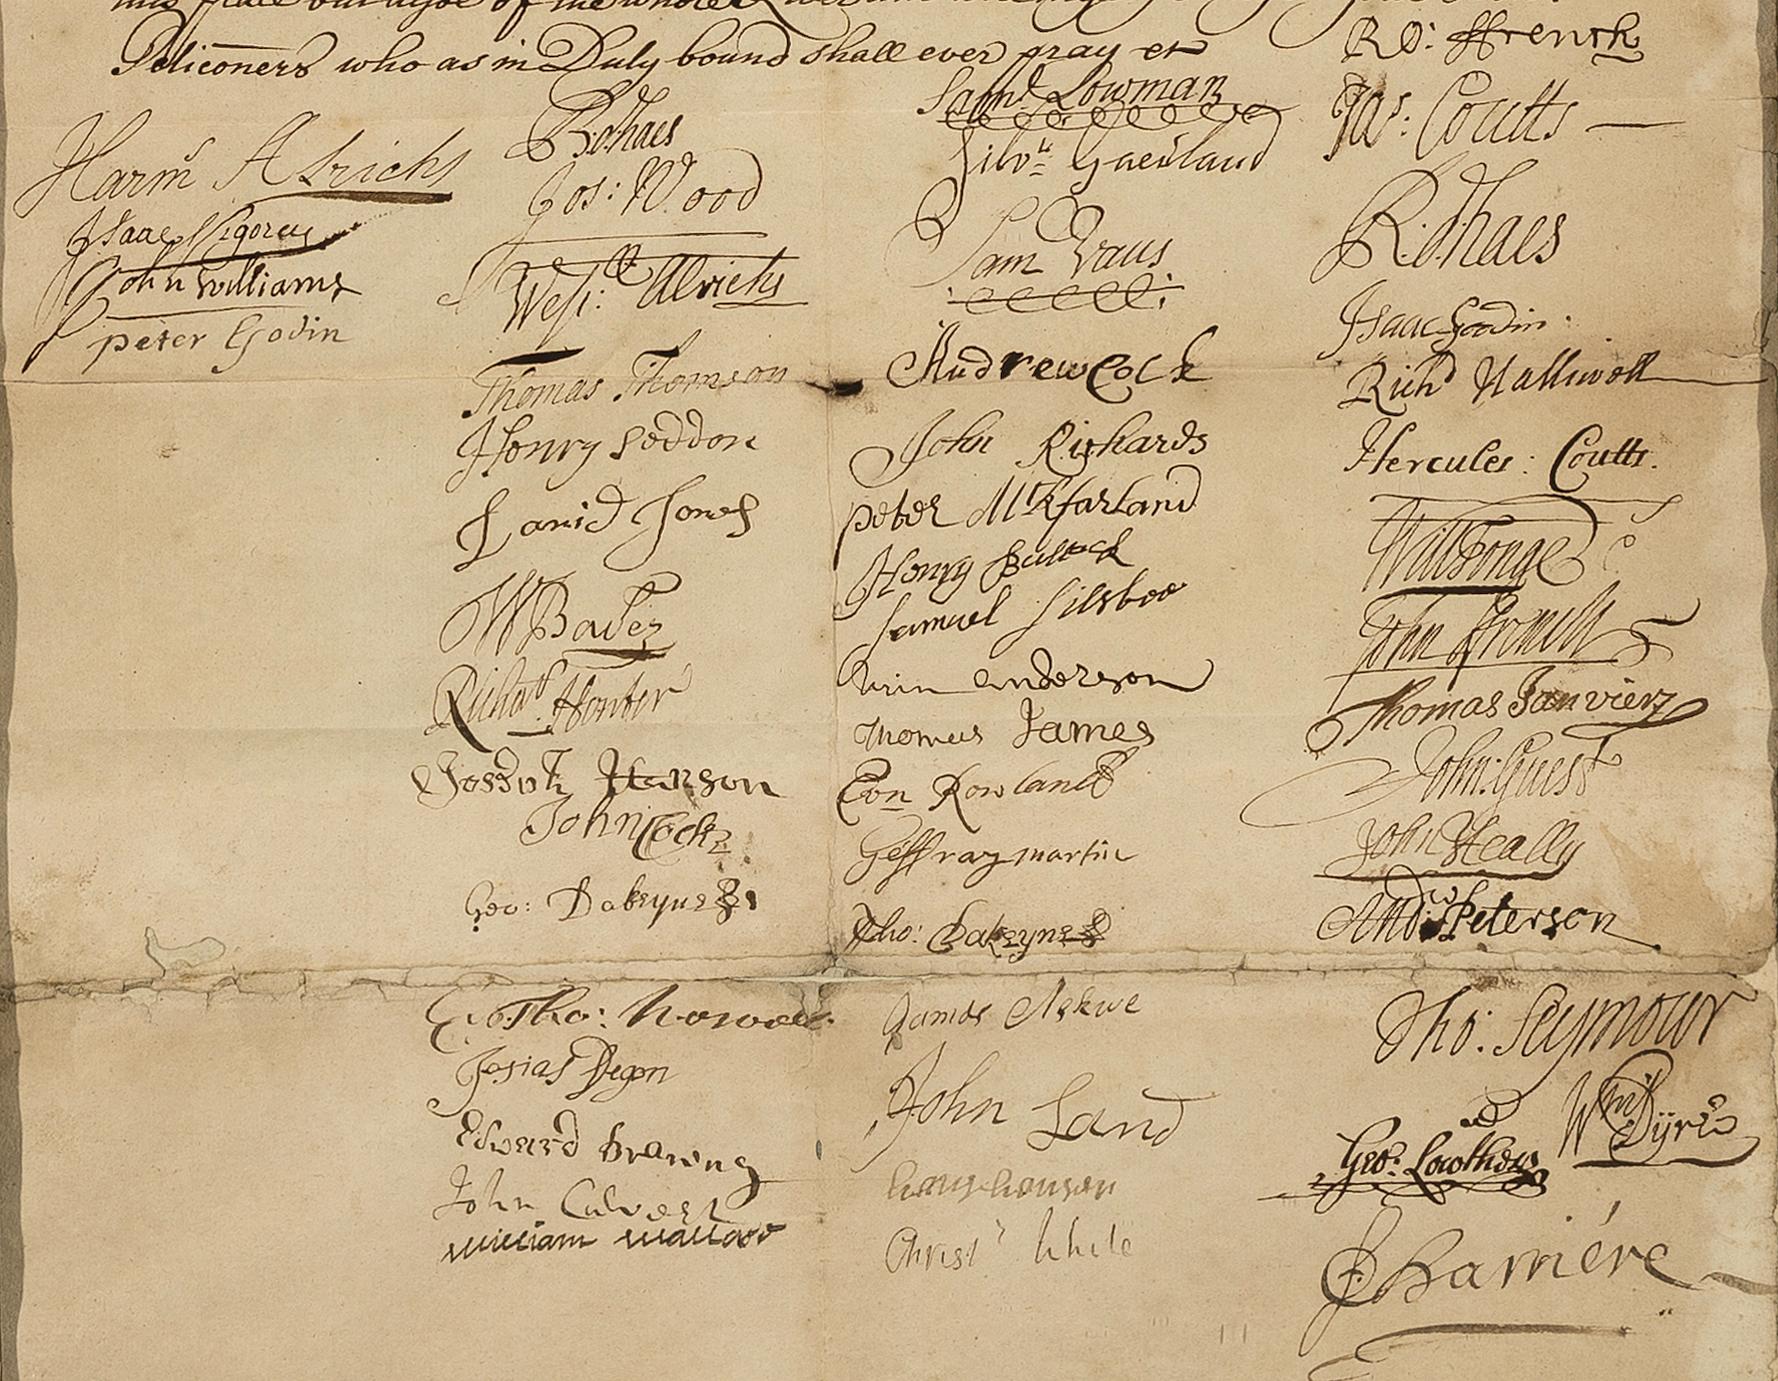 of the whole
Peticoners who as in Duly bound shall ever pray etc
Harmˢ Alrichs
Isaac Vigorey
John Williams
peter Godin
R: dhaes
Jos: Wood
Wessˡˡ: Alrichs
Thomas Thomson
Henry Seddon
David Jones
Richᵈ
John Cock
Geo: Dakeynes
Tho:
Josias
Edward
John Calvert
William Wallace
Samˡ Lowman
Silvʳ Garland
Sam Vaus
Andrew Cock
John Richards
peter McKfarland
Henry Bullock
Samuel Silsbee
anderson
Thomas James
Evn Rowland
Geffray martin
Tho: Dakeynes
James Askwe
John Land
hansen
Christʳ White
Ro: Ffrench
Jaˢ: Coutts
R: dhaes
Isaac Goodin
Richᵈ Halliwell
Hercules: Coutts.
Will Tonge
John
Thomas Janvier
John: Guest
John Heally
Andʷ: Peterson
Tho: Seymour
Wᵐ Dyre
Geo: Lowther
Charriere